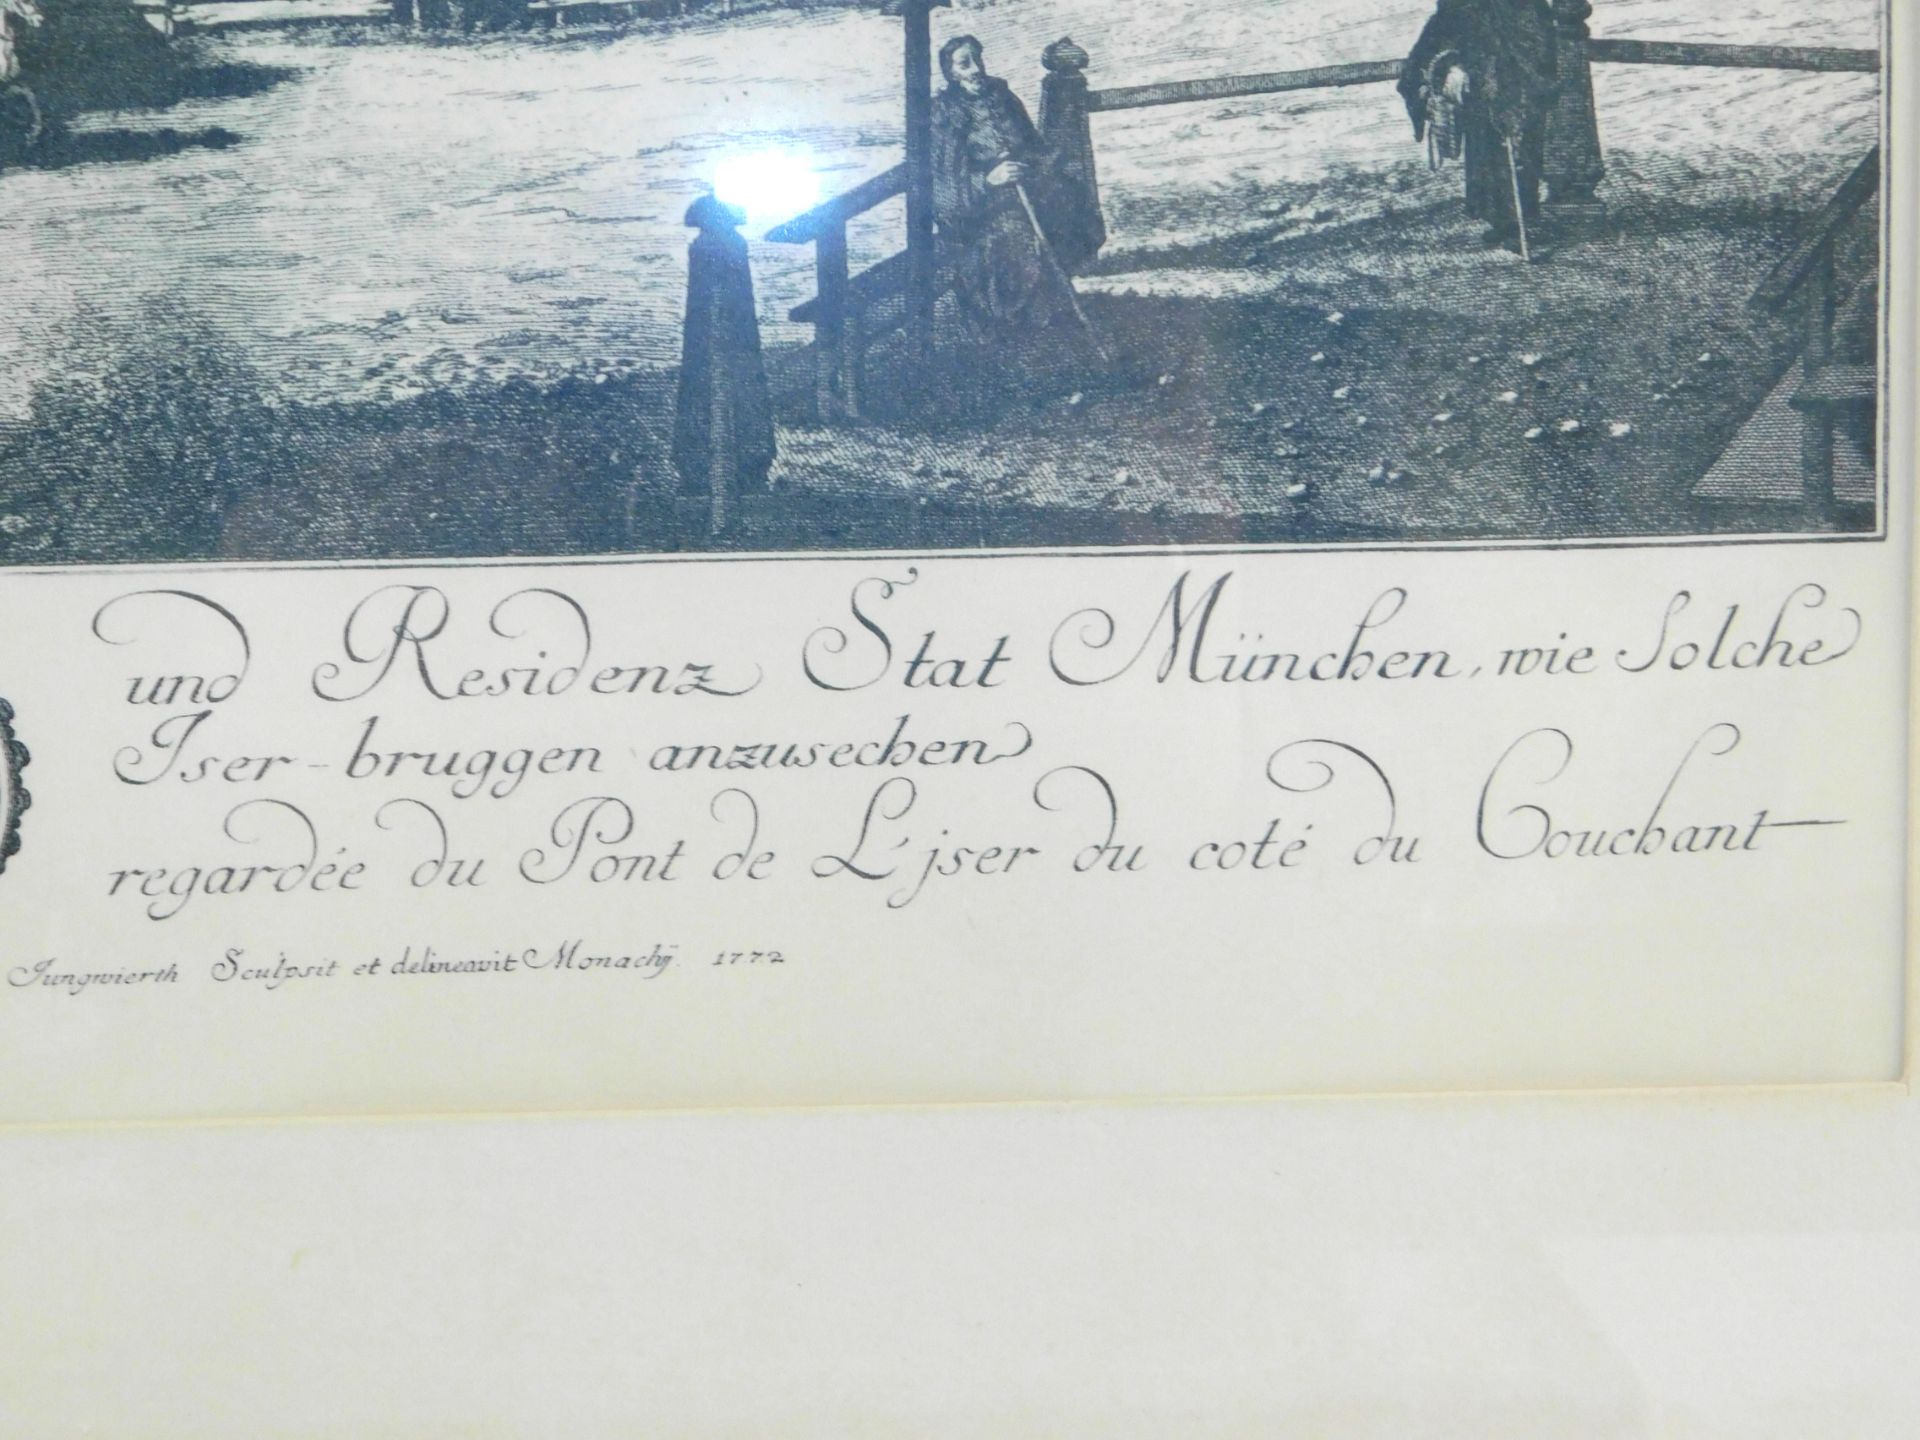 und Residenz Stat München, wie solche
Jser-bruggen anzusechen
regardée du Pont de L'jser du coté du Couchant
Jungwierth Sculpsit et delineavit Monachij. 1772